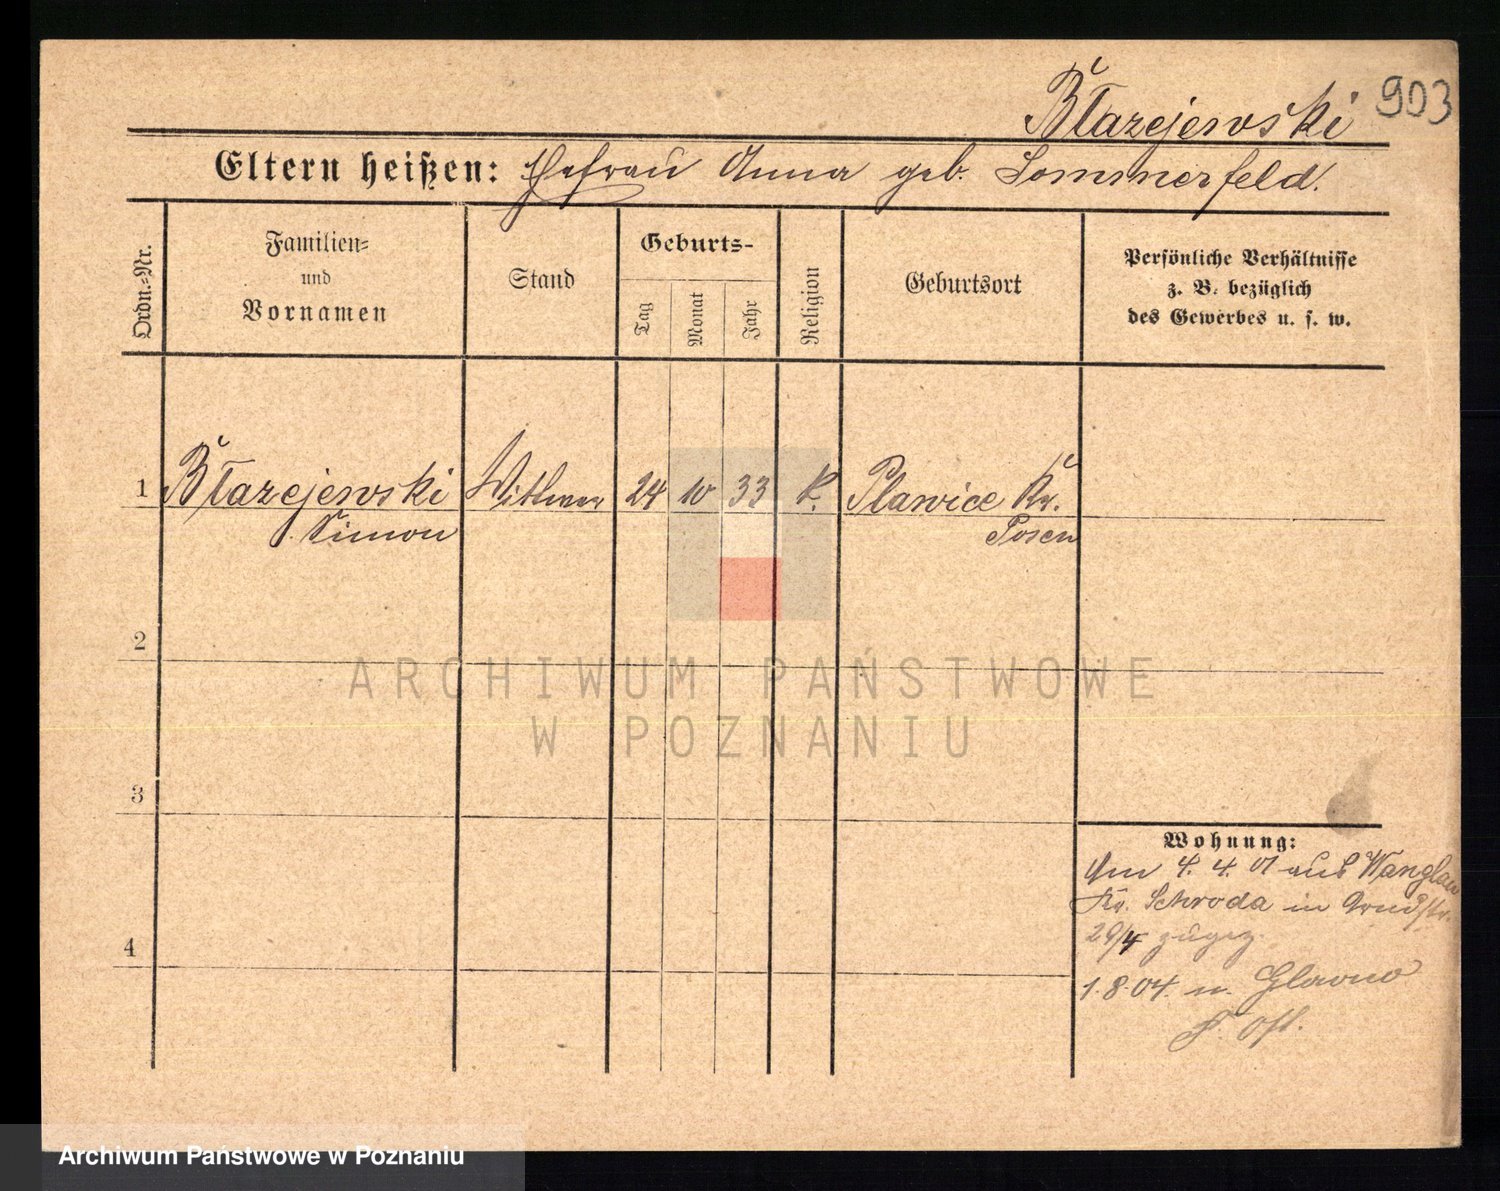 903
Błazejewski
Eltern heißen: Ehefrau Anna geb. Sommerfeld.
Ordn.=Nr.
Familien=
und
Vornamen
Stand
Geburts-
Tag
Monat
Jahr
Religion
Geburtsort
Persönliche Verhältnisse
z. B. bezüglich
des Gewerbes u. s. w.
1 Błazejewski Wittwer 24 10 33 K. Plawice Kr.
Simon Posen
2
3
4
Wohnung:
Am 4. 4. 01 aus Wanglau
Kr. Schroda in
29/4 zugez.
1.8.04. n. Glowno
P. Ost.
ARCHIWUM PAŃSTWOWE
W POZNANIU
Archiwum Państwowe w Poznaniu